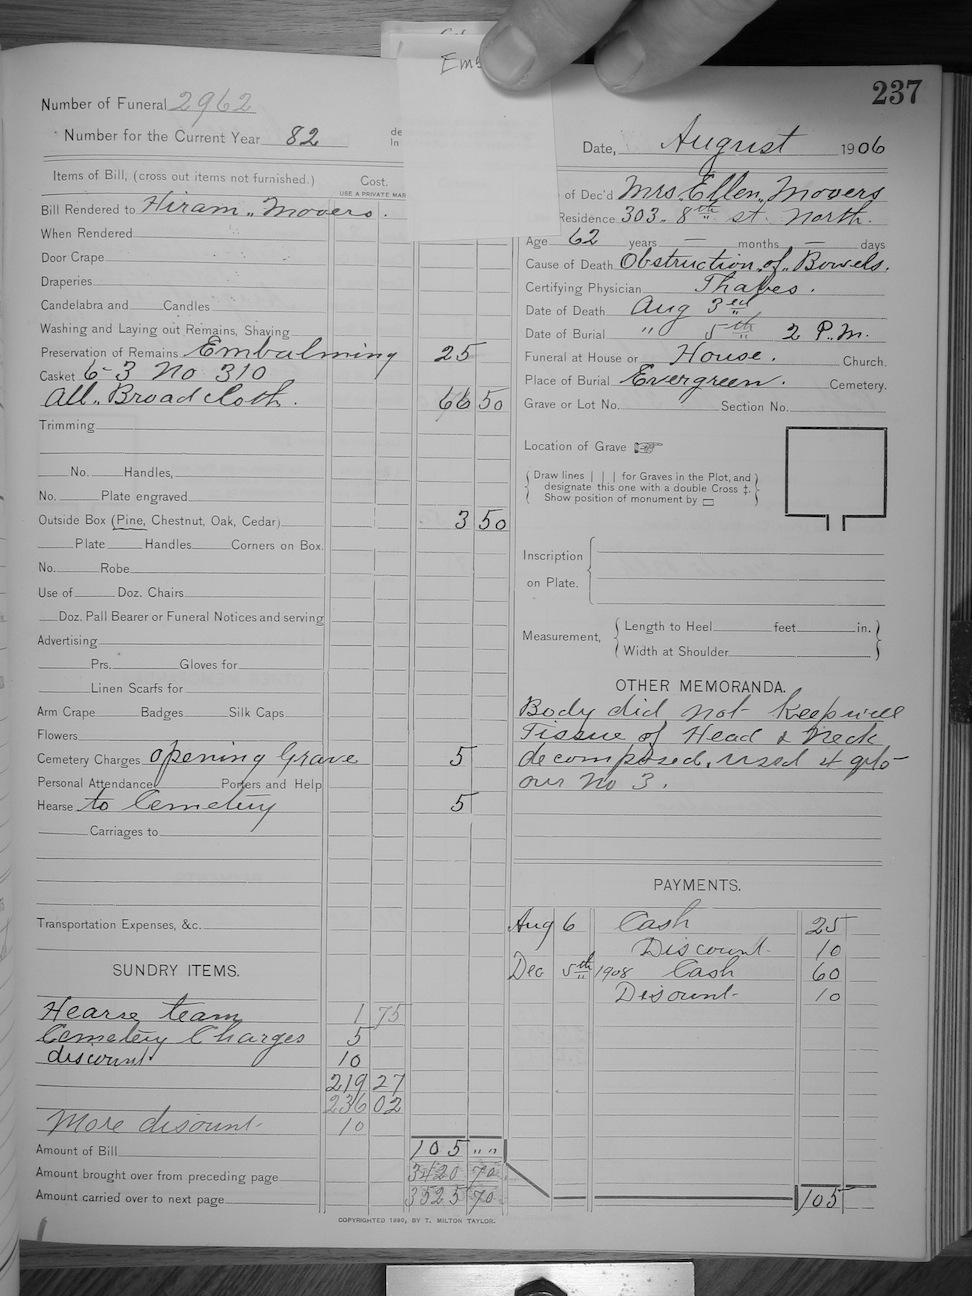 237
Number of Funeral 2962
Number for the Current Year 82
Date, August 1906
Items of Bill, (cross out items not furnished.) Cost.
USE A PRIVATE MAR
Bill Rendered to Hiram Movers.
When Rendered
Door Crape
Draperies
Candelabra and Candles
Washing and Laying out Remains, Shaving
Preservation of Remains Embalming 25
Casket 6-3 No 310
All Broadcloth. 66 50
Trimming
No. Handles,
No. Plate engraved
Outside Box (Pine, Chestnut, Oak, Cedar) 3 50
Plate Handles Corners on Box.
No. Robe
Use of Doz. Chairs
Doz. Pall Bearer or Funeral Notices and serving
Advertising
Prs. Gloves for
Linen Scarfs for
Arm Crape Badges Silk Caps
Flowers
Cemetery Charges opening Grave 5
Personal Attendance Porters and Help
Hearse to Cemetery 5
Carriages to
Transportation Expenses, &c.
SUNDRY ITEMS.
Hearse team 1 75
Cemetery Charges 5
discount 10
219 27
236 02
More disount 10
Amount of Bill 105 " "
Amount brought over from preceding page 3420 70
Amount carried over to next page 3525 70
of Dec'd Mrs. Ellen Movers
Residence 303. 8th st. North.
Age 62 years — months — days
Cause of Death Obstruction of Bowels.
Certifying Physician Thabes.
Date of Death Aug 3rd
Date of Burial " 5th 2 P.M.
Funeral at House or House. Church.
Place of Burial Evergreen. Cemetery.
Grave or Lot No. Section No.
Location of Grave
Draw lines | | | for Graves in the Plot, and
designate this one with a double Cross ‡.
Show position of monument by
Inscription
on Plate.
Measurement,
Length to Heel feet in.
Width at Shoulder
OTHER MEMORANDA.
Body did not keep well
Tissue of Head & Neck
decomposed, used 4 qts
our No 3.
PAYMENTS.
Aug 6 Cash 25
Discount 10
Dec 5th 1908 Cash 60
Disount 10
105
COPYRIGHTED 1890, BY T. MILTON TAYLOR.